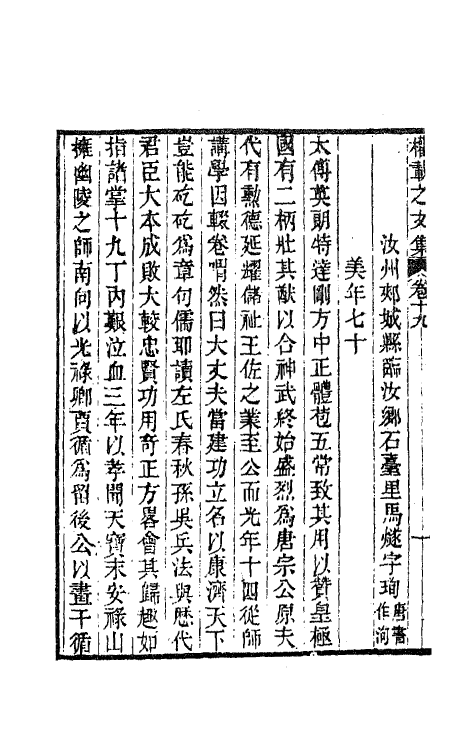 權載之文集 卷十九 一
汝州郟城縣臨汝鄉石臺里馬燧字珣唐書作洵
美年七十
太傅英朗特達剛方中正體苞五常致其用以贊皇極
國有二柄壯其猷以合神武終始盛烈爲唐宗公原夫
代有勲德延耀儲祉王佐之業至公而光年十四從師
講學因輟卷喟然曰大丈夫當建功立名以康濟天下
豈能矻矻爲章句儒耶讀左氏春秋孫吳兵法與歷代
君臣大本成敗大較忠賢功用奇正方畧會其歸趣如
指諸掌十九丁內艱泣血三年以孝聞天寶末安祿山
擁幽陵之師南向以光祿卿賈循爲留後公以畫干循